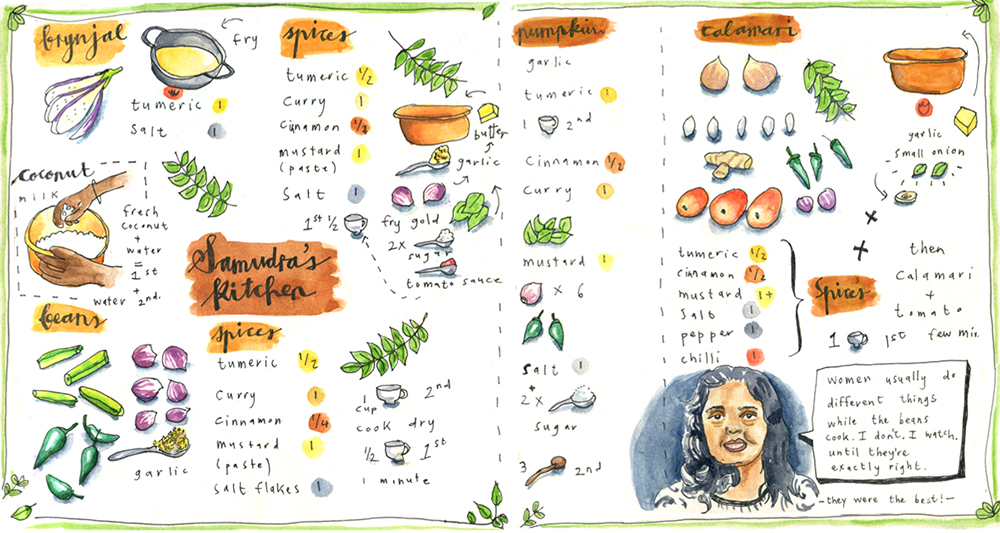 brynjal
fry
tumeric 1
Salt 1
coconut
milk
fresh
coconut
+
water
=
1st
+
water 2nd.
spices
tumeric 1/2
Curry 1
Cinnamon 1/2
mustard 1
(paste)
Salt 1
1st 1/2
butter
garlic
fry gold
2x
sugar
tomato sauce
Samudra's
Kitchen
beans
garlic
spices
tumeric 1/2
Curry 1
cinnamon 1/4
mustard 1
(paste)
salt flakes 1
1 cup 2nd
cook dry
1/2 1st
1 minute
pumpkin
garlic
tumeric 1
1 2nd
Cinnamon 1/2
Curry 1
mustard 1
x 6
Salt 1
+
2x
sugar
3 2nd
calamari
garlic
small onion
+
+
then
calamari
+
tomato
1 1st few min.
tumeric 1/2
cinamon 1/2
mustard 1+
Salt 1
pepper 1
chilli 1
Spice's
women usually do
different things
while the beans
cook. I don't. I watch.
until they're
exactly right.
-they were the best!-